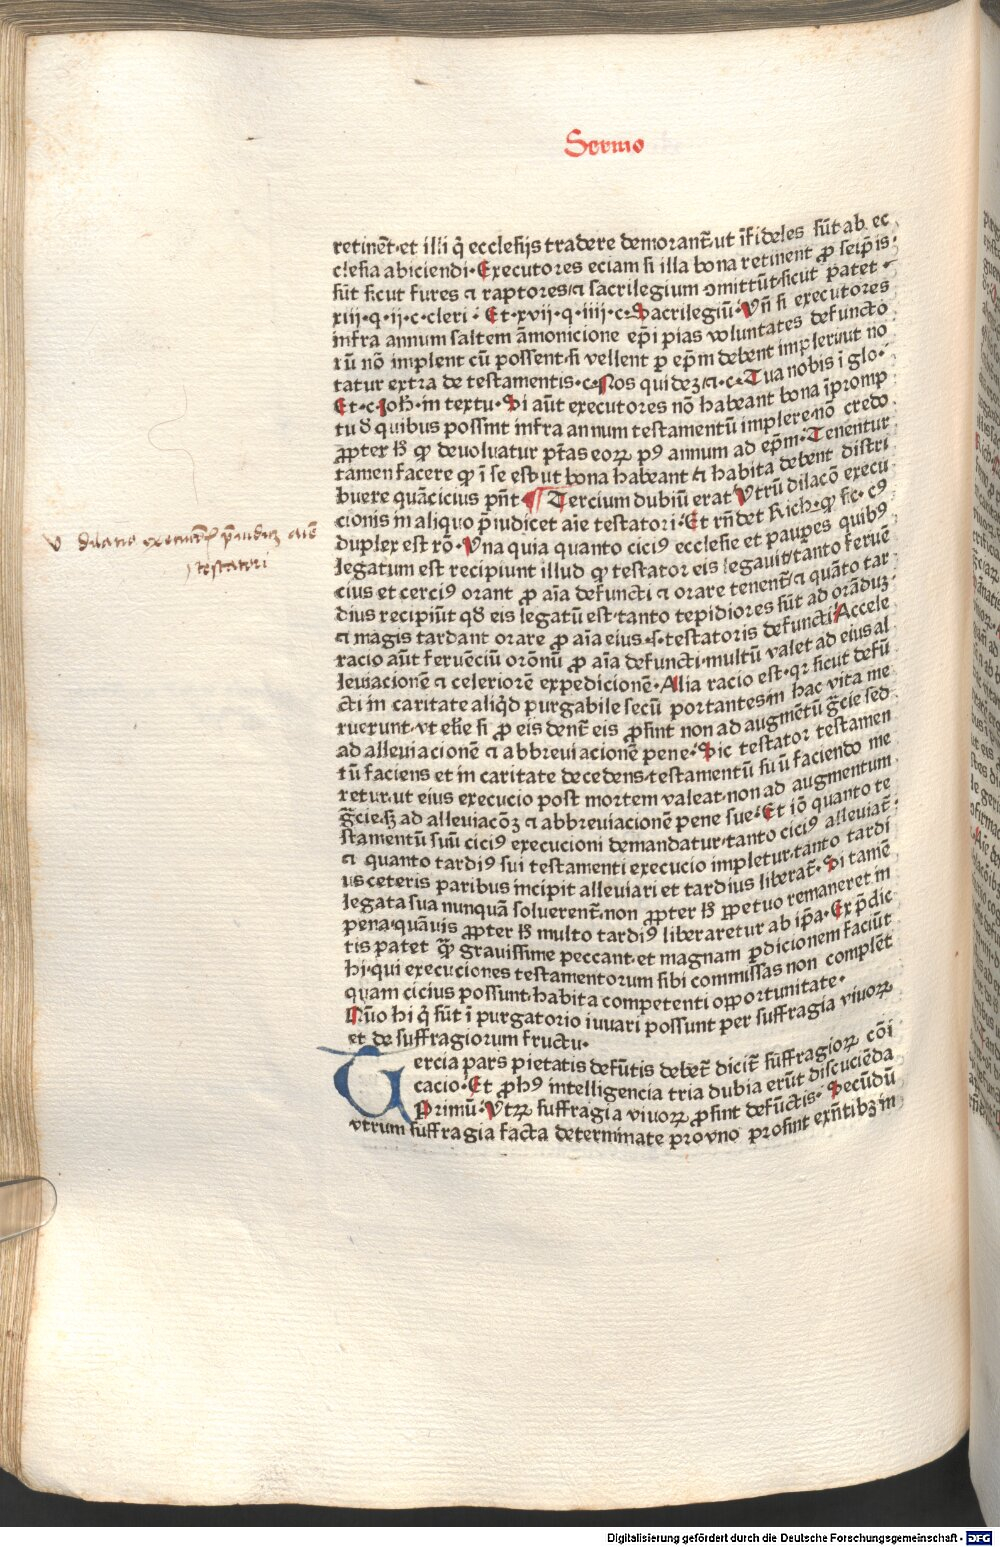 Sermo
retinēt·et illi q̄ ecclesijs tradere demorant̄·ut īfideles sūt ab ec
clesia abiciendi·Executores eciam si illa bona retinent ꝓ seip̄is
sūt sicut fures ⁊ raptores·⁊ sacrilegium ꝯmittūt·sicut patet·
xiij·q·ij·c·cleri·Et·xvij·q·iiij·c·Sacrilegiū·Vn̄ si executores
infra annum saltem āmonicione ep̄i pias voluntates defuncto
rū nō implent cū possent·si vellent ꝑ ep̄m debent implere·ut no
tatur extra de testamentis·c·Nos quidez·⁊·c·Tua nobis ī glo·
Et·c·Joh̄·in textu·Si aūt executores nō habeant bona īpromp
tu d̄ quibus possint infra annum testamentū implere·nō credo
ꝓpter h̄ ꝙ deuoluatur p̄tas eoꝝ pꝰ annum ad ep̄m·Tenentur
tamen facere ꝙ ī se est·ut bona habeant ⁊ habita debent distri
buere quācicius pn̄t·¶ Tercium dubiū erat Vtrū dilacō execu
cionis in aliquo p̄iudicet aīe testatori·Et rn̄det Rich·ꝙ sic·cꝰ
duplex est rō·Vna quia quanto ciciꝰ ecclesie et pauꝑes quibꝰ
legatum est recipiunt illud ꝙ testator eis legauit·tanto feruē
cius et cerciꝰ orant ꝓ aīa defuncti ⁊ orare tenent̄·⁊ quāto tar
dius recipiūt qd̄ eis legatū est·tanto tepidiores sūt ad orāduꝫ
⁊ magis tardant orare ꝓ aīa eius·s·testatoris defuncti·Accele
racio aūt feruēciū orōnū ꝓ aīa defuncti·multū valet ad eius al
leuiacionē ⁊ celeriorē expedicionē·Alia racio est·qꝛ sicut defū
cti in caritate aliq̄d purgabile secū portantes·in hac vita me
ruerunt·vt eli̅e si ꝓ eis dent̄ eis ꝓsint non ad augmētū gr̄cie sed
ad alleuiacionē ⁊ abbreuiacionē pene·Sic testator testamen
tū faciens et in caritate decedens·testamentū suū faciendo me
retur·ut eius execucio post mortem valeat·non ad augmentum
gr̄cie·sꝫ ad alleuiacōꝫ ⁊ abbreuiacionē pene sue·Et iō quanto te
stamentū suū ciciꝰ execucioni demandatur·tanto ciciꝰ alleuiat̄·
⁊ quanto tardiꝰ sui testamenti execucio impletur·tanto tardi
us ceteris paribus incipit alleuiari et tardius liberat̄·Si tamē
legata sua nunquā soluerent̄·non ꝓpter h̄ ꝑpetuo remaneret in
pena·quāuis ꝓpter h̄ multo tardiꝰ liberaretur ab ip̄a·Ex p̄dic
tis patet ꝙ̄ grauissime peccant·et magnam ꝑdicionem faciūt
hi·qui execuciones testamentorum sibi commissas non complēt
quam cicius possunt·habita competenti opportunitate·
Nūo hi q̄ sūt ī purgatorio iuuari possunt per suffragia viuoꝝ
et de suffragiorum fructu·
Tercia pars pietatis defūtis debet̄ dicit̄ suffragioꝝ cōi
cacio·Et ꝓ hꝰ intelligencia tria dubia erūt discuciēda
Primū·Vtꝝ suffragia viuoꝝ ꝓsint defūctis·Secūdū
vtrum suffragia facta determinate pro vno prosint exn̄tibꝫ in
v dilatio executōis p̄iudicꝫ aīe
testatori
Digitalisierung gefördert durch die Deutsche Forschungsgemeinschaft - DFG